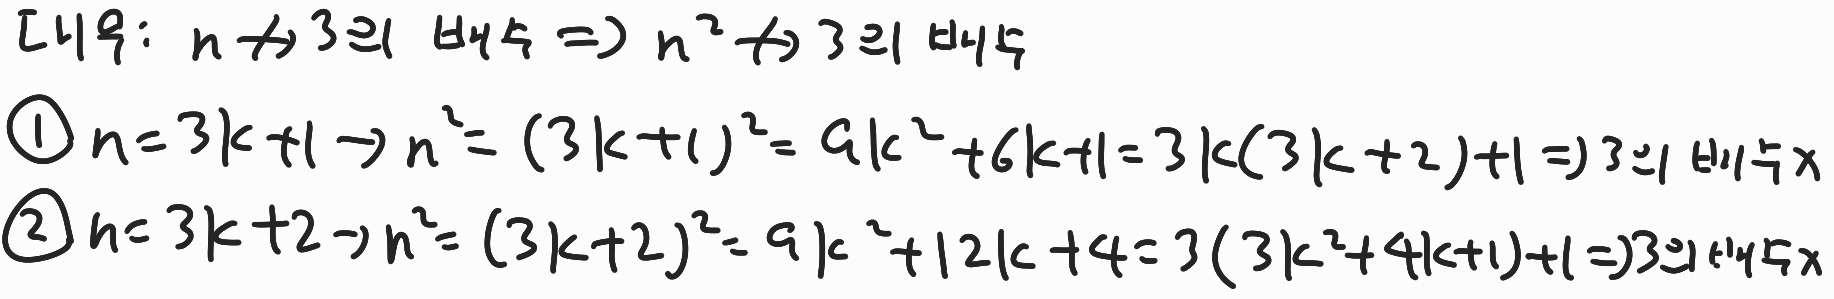 대우: n ↛ 3의 배수 => n² ↛ 3의 배수
① n = 3k+1 → n² = (3k+1)² = 9k²+6k+1 = 3k(3k+2)+1 => 3의 배수 x
② n = 3k+2 → n² = (3k+2)² = 9k²+12k+4 = 3(3k²+4k+1)+1 => 3의 배수 x